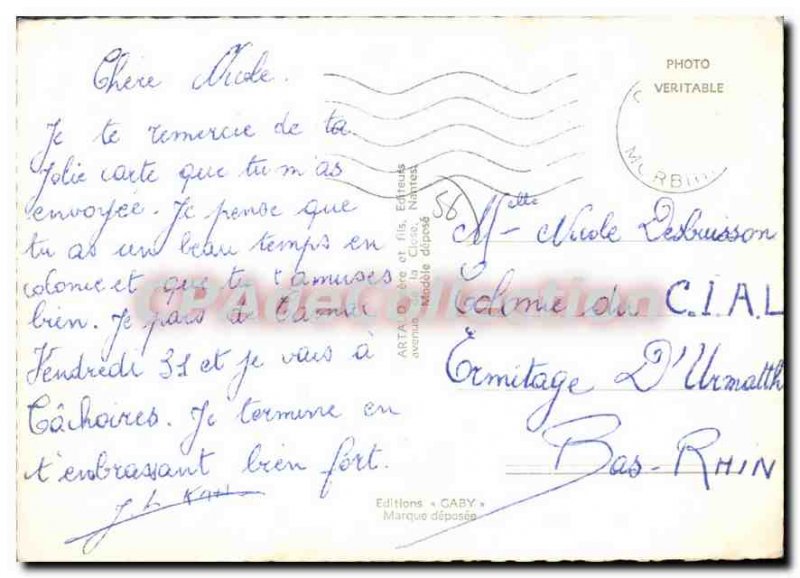 Chère Nicole.
Je te remercie de ta
jolie carte que tu m'as
envoyée. Je pense que
tu as un beau temps en
colonie et que tu t'amuses
bien. Je pars de
Vendredi 31 et je vais à
Je termine en
t'enbrassant bien fort.
PHOTO
VERITABLE
MORBIHAN
56
ARTAUD Père et fils, Editeurs
avenue de la Close, Nantes
Modèle déposé
Melle Nicole Desbuisson
Colonie du C.I.A.L
Ermitage D'Urmatth
Bas-RHIN
Editions « GABY »
Marque déposée
CPAdeCollection